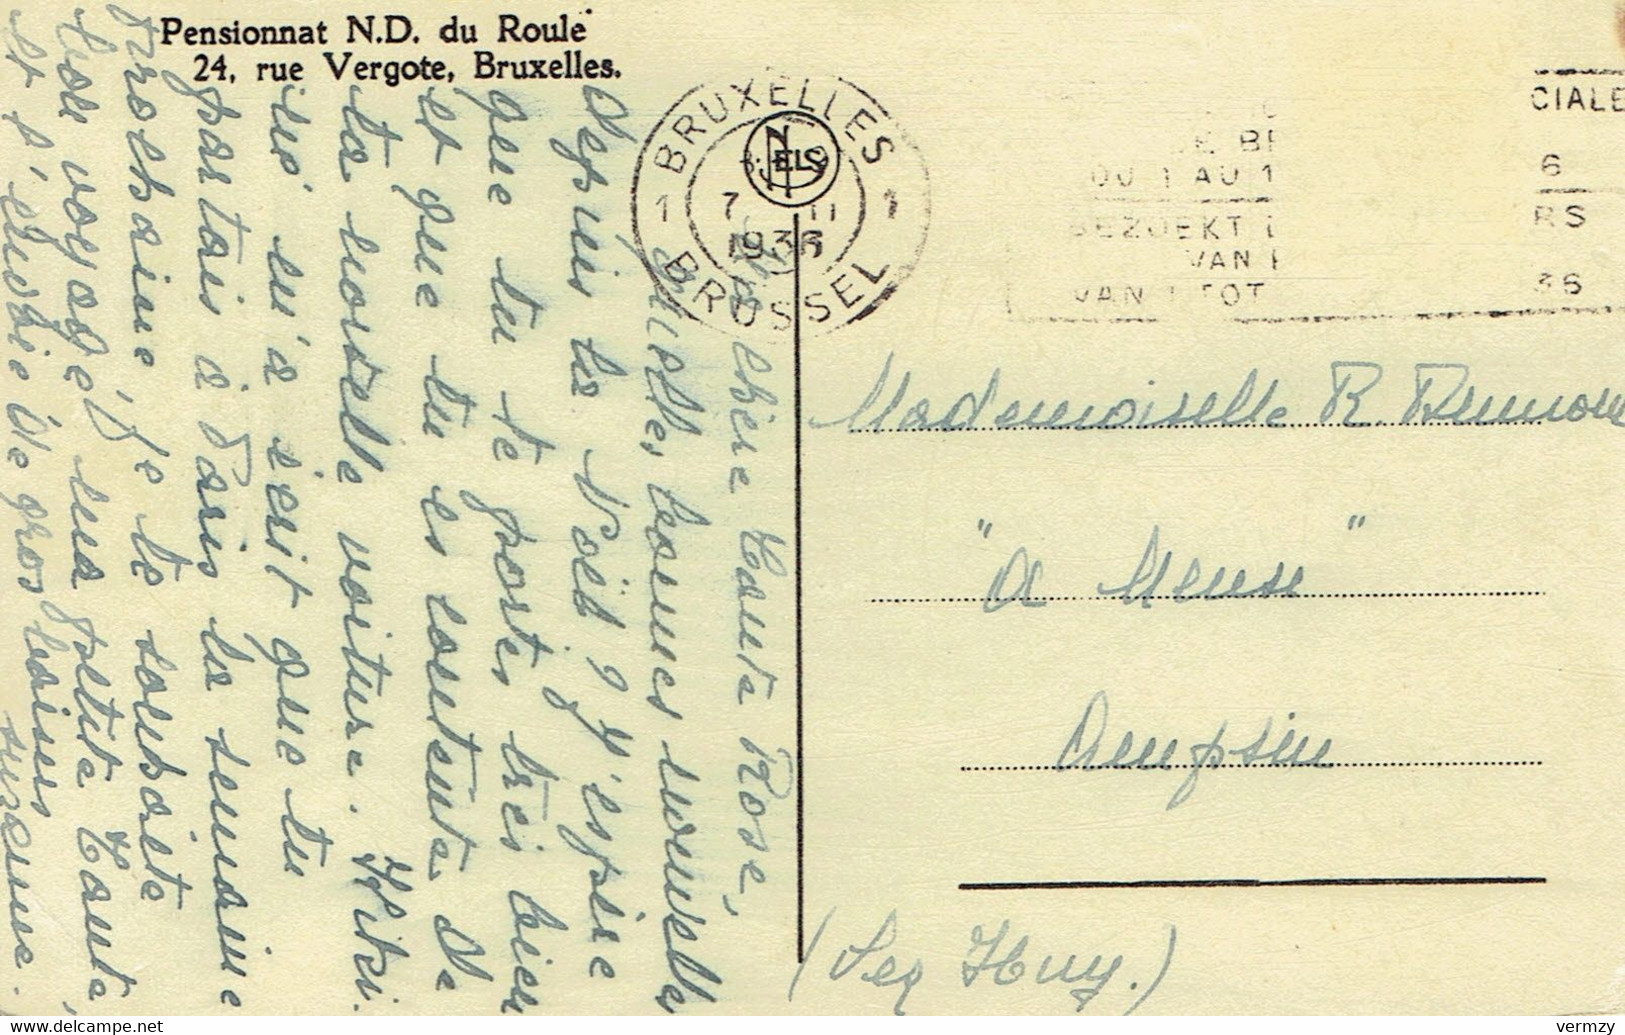 Pensionnat N.D. du Roule
24, rue Vergote, Bruxelles.
BRUXELLES
NELS
1 1
7 III
1936
BRUSSEL
CIALE
DU 1 AU 1 6
BEZOEKT RS
VAN
VAN 1 TOT 36
Chère Tante Rose,
quelles bonnes nouvelles
depuis la Noël ? J'espère
que tu te portes très bien
et que tu es contente de
ta nouvelle voiture. Kiki
m'a écrit que tu
partais à Paris la semaine
prochaine. Je te souhaite
bon voyage, ma petite Tante,
et t'envoie de gros baisers
Suzanne.
Mademoiselle R.
"A Meuse"
Ampsin
(Lez Huy.)
vermzy @ delcampe.net